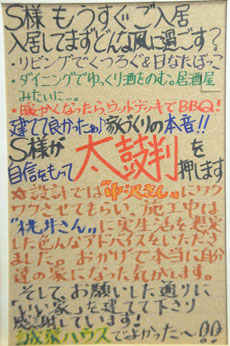 S様 もうすぐご入居
入居してまずどんな風に過ごす?
・リビングでくつろぐ&日なたぼっこ
・ダイニングでゆっくり酒をのむ。居酒屋
みたいに…。
・暖かくなったらウッドデッキでBBQ!
建てて良かったぁ♪家づくりの本音!!
S様が
自信をもって 太鼓判を
押します
☆設計では"中沢さん"にワク
ワクさせてもらい、施工中は
"桃井さん"に実生活を想定
したどんなアドバイスをいただき
ました。おかげで本当に自分
達の家になった気がします。
そしてお願いした通りに
"いい家"を建てて下さり
感謝しています!
誠栄ハウスでよかった〜!!